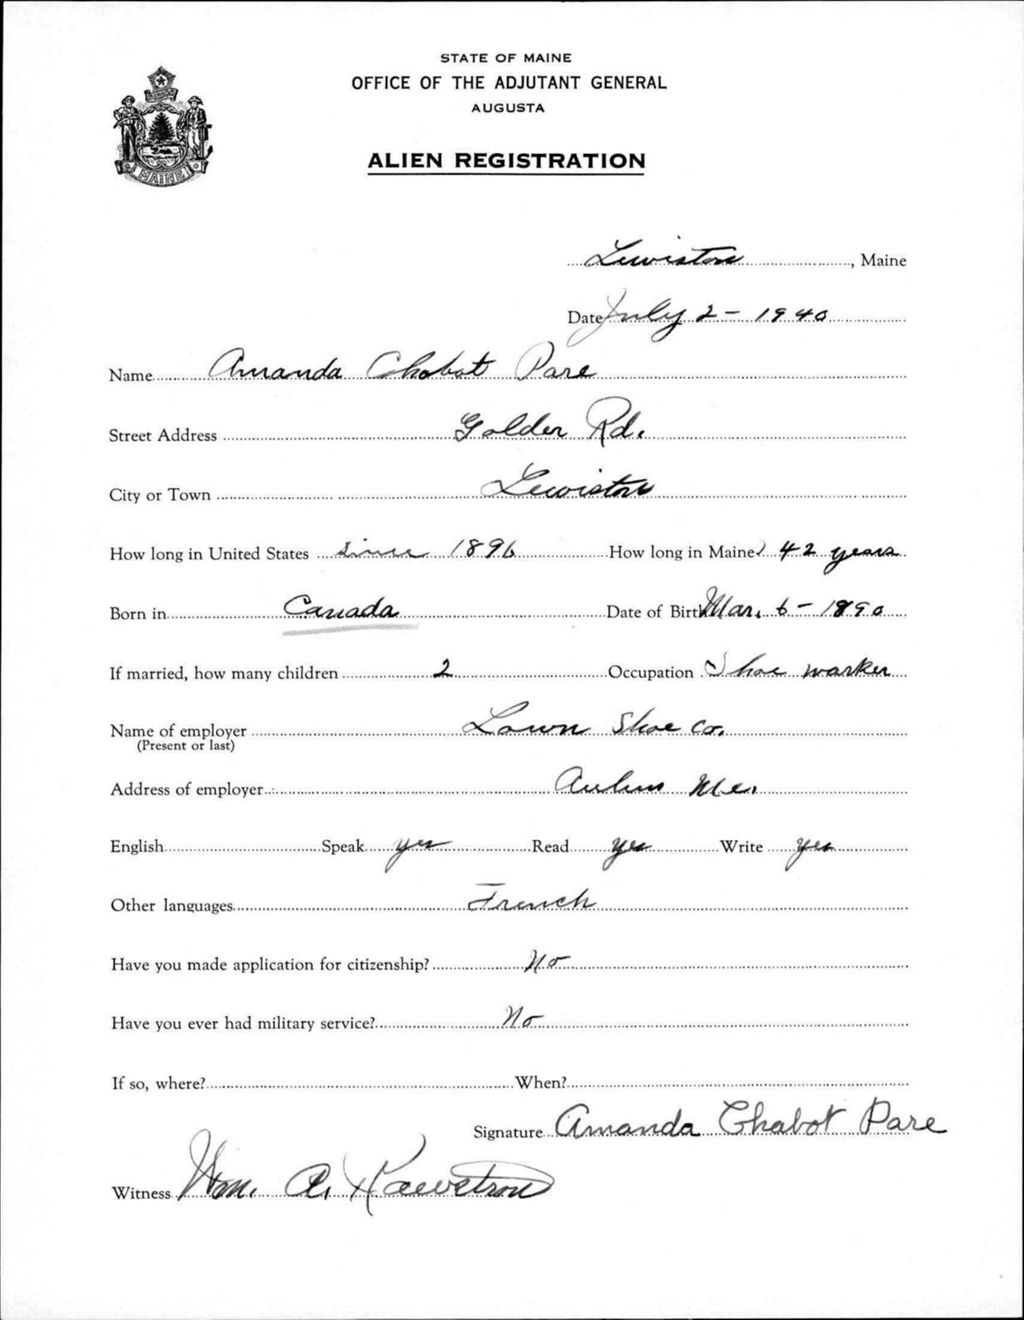 STATE OF MAINE
OFFICE OF THE ADJUTANT GENERAL
AUGUSTA
ALIEN REGISTRATION
MAINE
Lewiston, Maine
Date July 2 - 1940
Name Amanda Chabot Pare
Street Address Golder Rd.
City or Town Lewiston
How long in United States since 1896 How long in Maine 42 years
Born in Canada Date of Birth Mar. 6 - 1890
If married, how many children 2 Occupation Shoe worker
Name of employer Lown Shoe Co.
(Present or last)
Address of employer Auburn Me.
English Speak yes Read yes Write yes
Other languages French
Have you made application for citizenship? No
Have you ever had military service? No
If so, where? When?
Signature Amanda Chabot Pare
Witness Wm. A.